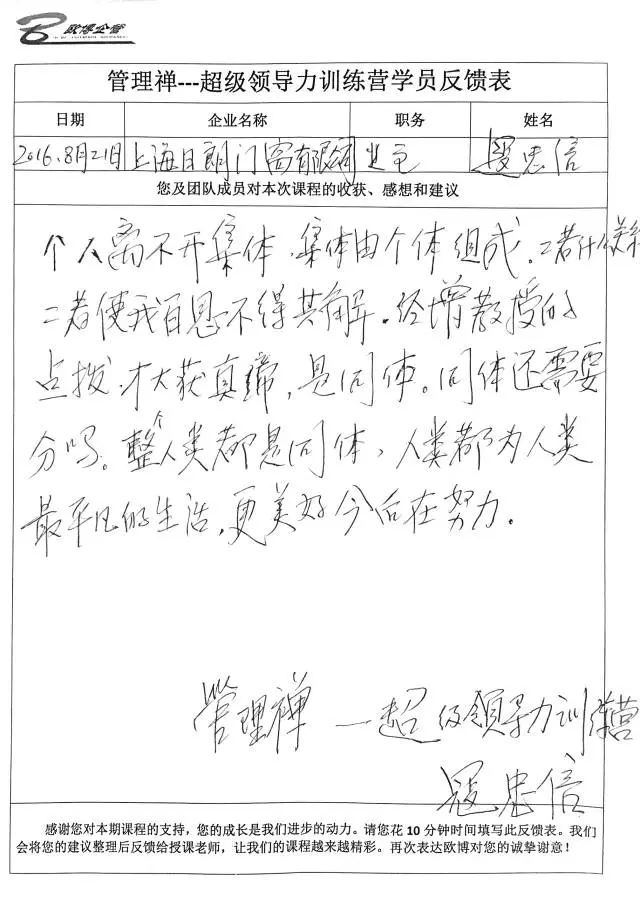 欧博企管
管理禅---超级领导力训练营学员反馈表
日期 企业名称 职务 姓名
2016.8月21日 上海日朗门窗有限公司 忠信
您及团队成员对本次课程的收获、感想和建议
个人离不开集体，集体由个体组成。二者什么关系
二者使我百思不得其解。经增教授的
点拨，才大获真缔，是同体。同体还需要
分吗。整个人类都是同体，人类都为人类
最平凡的生活，更美好今后在努力。
管理禅一超级领导力训练营
忠信
感谢您对本期课程的支持，您的成长是我们进步的动力。请您花 10 分钟时间填写此反馈表。我们
会将您的建议整理后反馈给授课老师，让我们的课程越来越精彩。再次表达欧博对您的诚挚谢意！